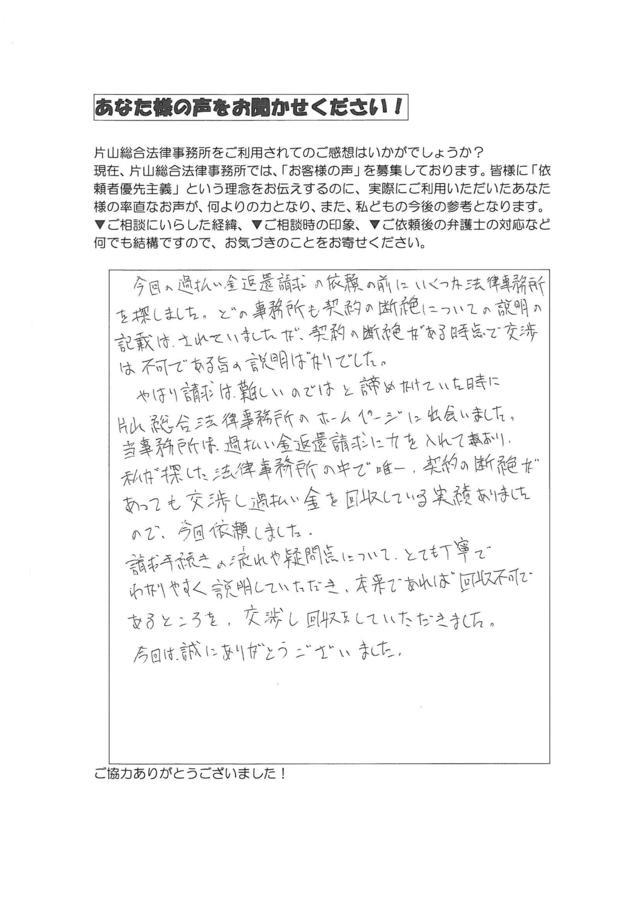 あなた様の声をお聞かせください！
片山総合法律事務所をご利用されてのご感想はいかがでしょうか？
現在、片山総合法律事務所では、「お客様の声」を募集しております。皆様に「依
頼者優先主義」という理念をお伝えするのに、実際にご利用いただいたあなた
様の率直なお声が、何よりの力となり、また、私どもの今後の参考となります。
▼ご相談にいらした経緯、▼ご相談時の印象、▼ご依頼後の弁護士の対応など
何でも結構ですので、お気づきのことをお寄せください。
今回の過払い金返還請求の依頼の前にいくつか法律事務所
を探しました。どの事務所も契約の断絶についての説明の
記載は、されていましたが、契約の断絶がある時点で交渉
は不可である旨の説明ばかりでした。
やはり請求は難しいのではと諦めかけていた時に
片山総合法律事務所のホームページに出会いました。
当事務所は、過払い金返還請求に力を入れており、
私が探した法律事務所の中で唯一、契約の断絶が
あっても交渉し過払い金を回収している実績ありました
ので、今回依頼しました。
請求手続きの流れや疑問点について、とても丁寧で
わかりやすく説明していただき、本来であれば回収不可で
あるところを、交渉し回収をしていただきました。
今回は、誠にありがとうございました。
ご協力ありがとうございました！